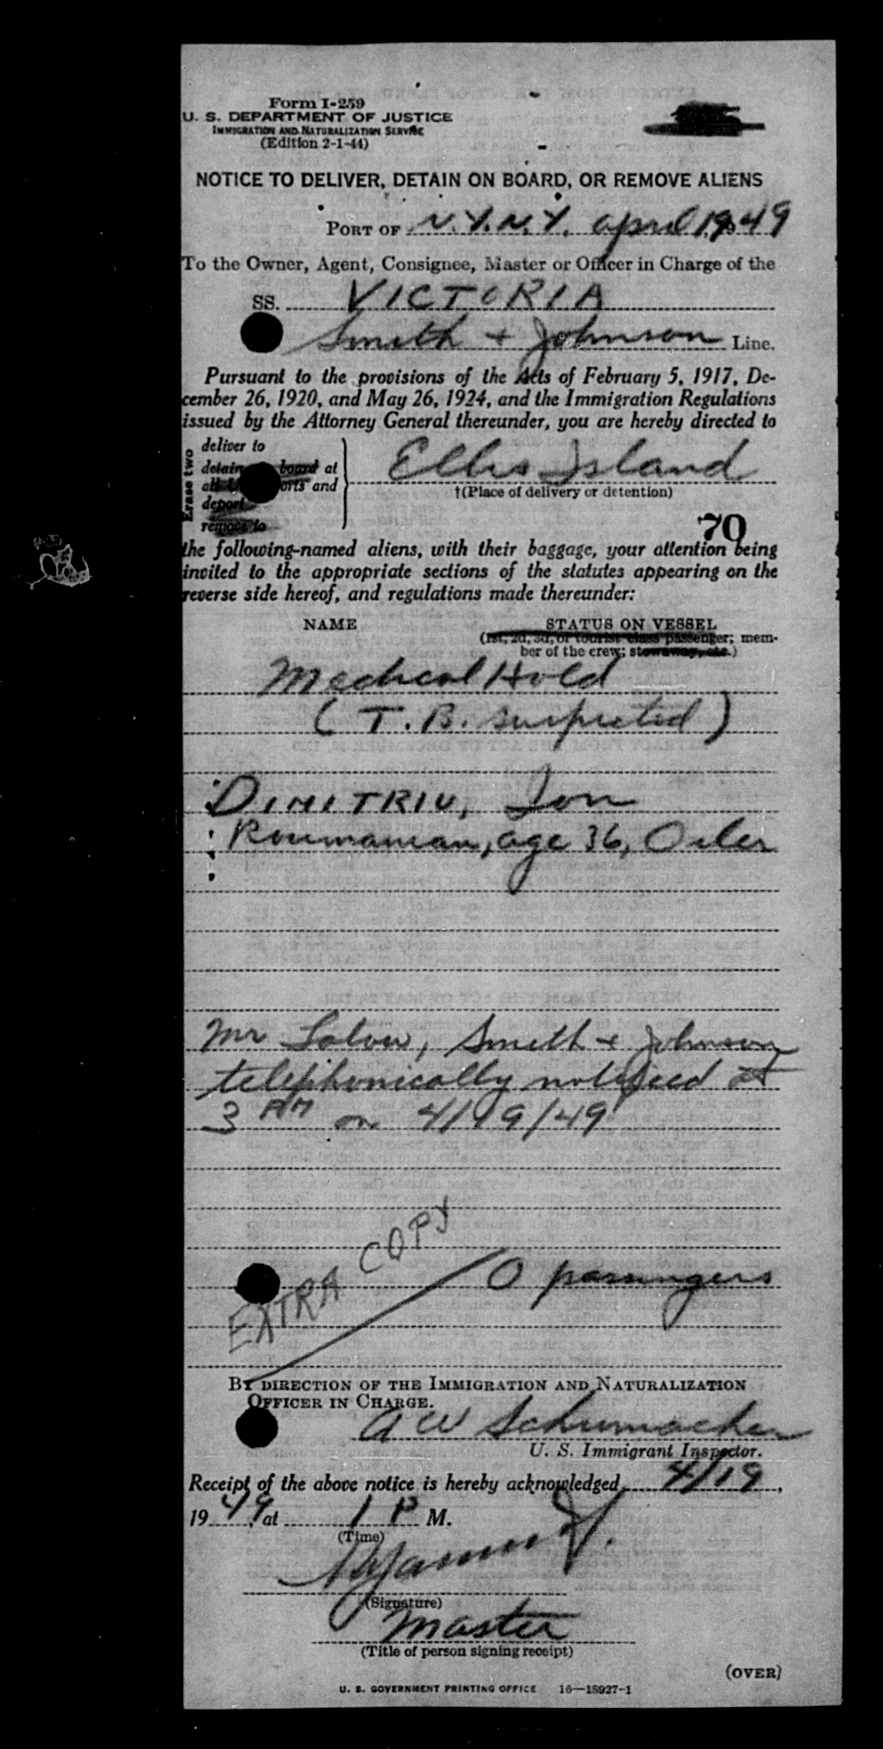 Form I-259
U. S. DEPARTMENT OF JUSTICE
IMMIGRATION AND NATURALIZATION SERVICE
(Edition 2-1-44)
NOTICE TO DELIVER, DETAIN ON BOARD, OR REMOVE ALIENS
PORT OF N.Y.N.Y. april 19, 1949
To the Owner, Agent, Consignee, Master or Officer in Charge of the
SS. VICTORIA
Smith + Johnson Line.
Pursuant to the provisions of the Acts of February 5, 1917, De-
cember 26, 1920, and May 26, 1924, and the Immigration Regulations
issued by the Attorney General thereunder, you are hereby directed to
Erase two
deliver to
detain board at
ports and
deport
remove to
Ellis Island
†(Place of delivery or detention)
70
the following-named aliens, with their baggage, your attention being
invited to the appropriate sections of the statutes appearing on the
reverse side hereof, and regulations made thereunder:
NAME STATUS ON VESSEL
(1st, 2d, 3d, or tourist class passenger; mem-
ber of the crew; stowaway, etc.)
Medical Hold
(T.B. suspected)
DIMITRIU, Ion
Roumanian, age 36, Oiler
Mr , Smith + Johnson
telephonically notified at
3 PM on 4/19/49
EXTRA COPY
0 passengers
BY DIRECTION OF THE IMMIGRATION AND NATURALIZATION
OFFICER IN CHARGE.
A W Schumacher
U. S. Immigrant Inspector.
Receipt of the above notice is hereby acknowledged 4/19,
1949, at 1 P M.
(Time)
(Signature)
Master
(Title of person signing receipt)
(OVER)
U. S. GOVERNMENT PRINTING OFFICE 16—18927-1